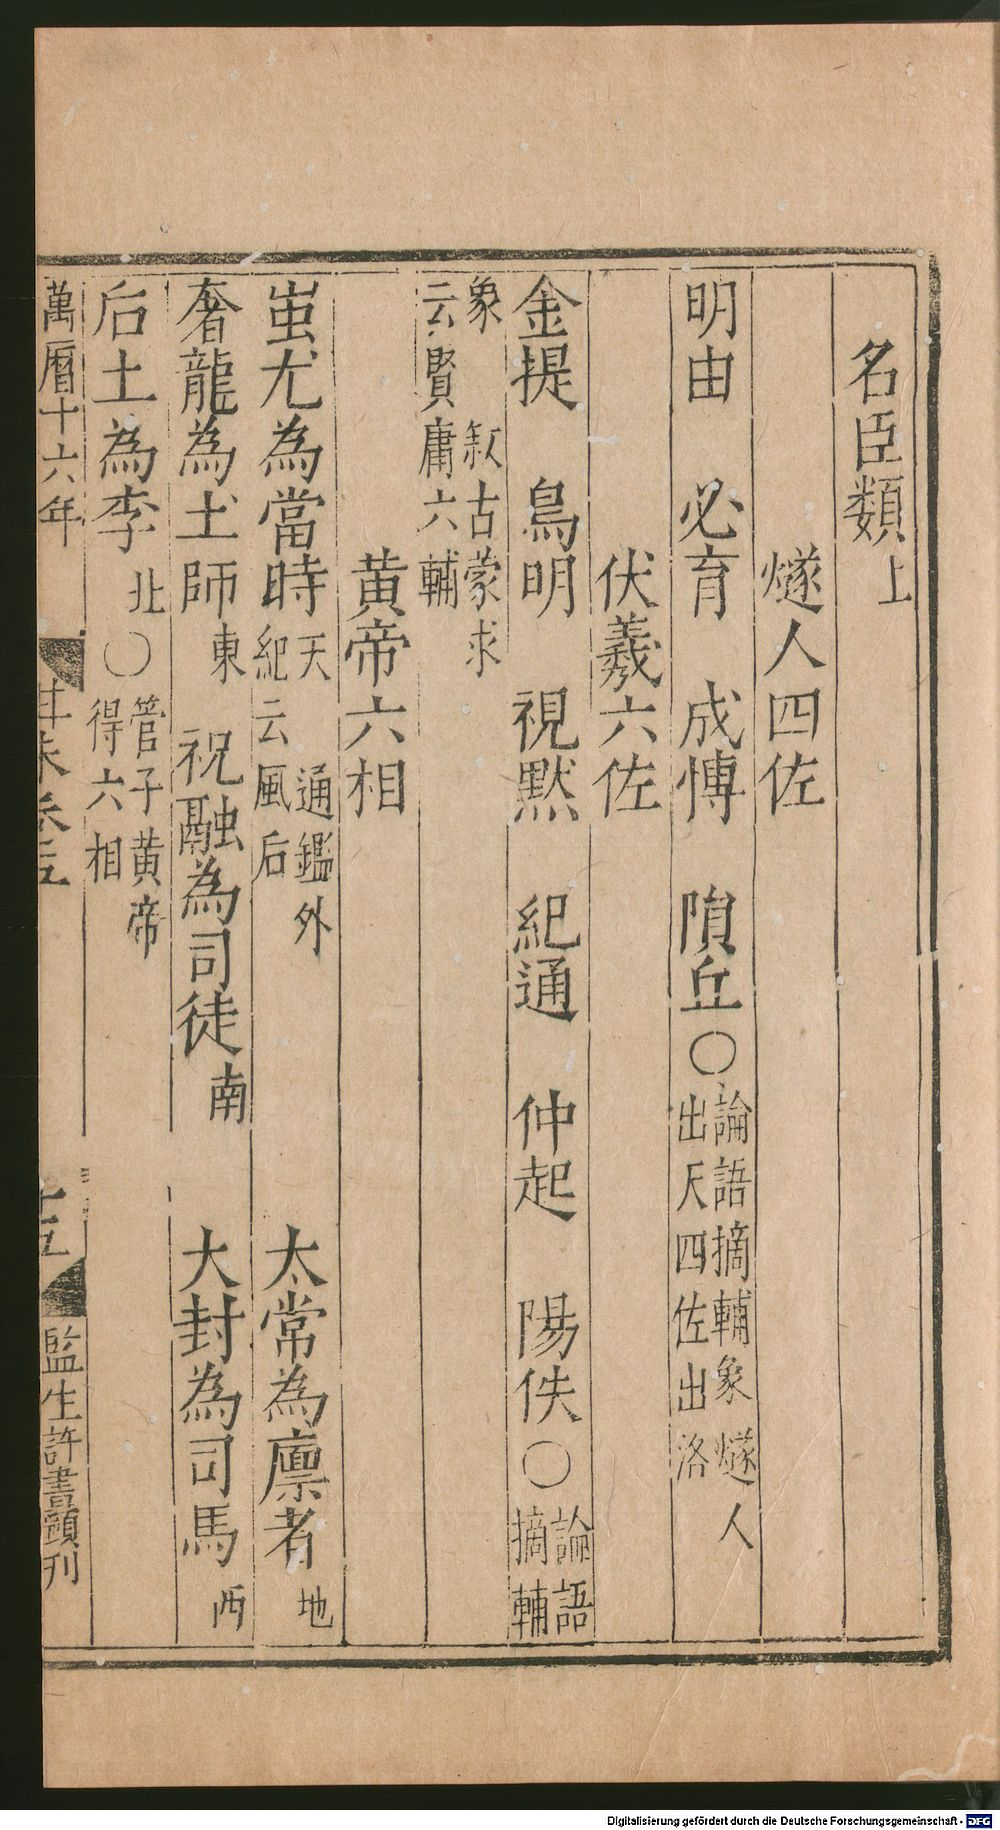 名臣類上
燧人四佐
明由　必育　成博　隕丘〇論語摘輔象燧人出天四佐出洛
伏羲六佐
金提　鳥明　視默　紀通　仲起　陽佚〇論語摘輔
象　叙古蒙求云賢庸六輔
黄帝六相
蚩尤為當時天　通鑑外紀云風后　太常為廪者地
奢龍為土師東　祝融為司徒南　大封為司馬西
后土為李北〇管子黄帝得六相
萬曆十六年
監生許書頭刊
Digitalisierung gefördert durch die Deutsche Forschungsgemeinschaft - DFG